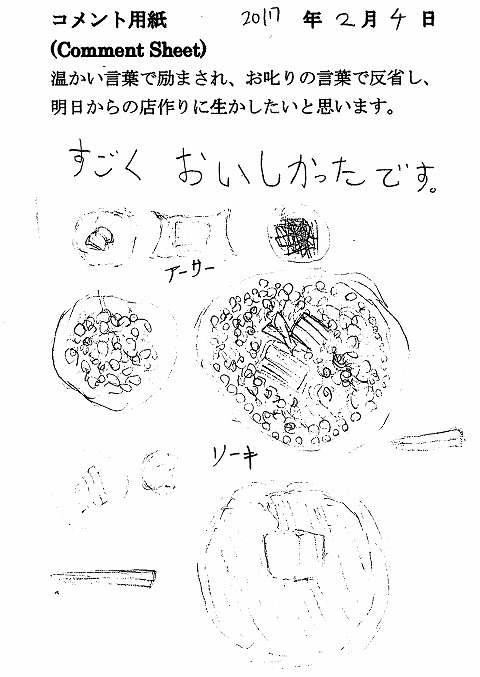 コメント用紙 2017 年 2 月 4 日
(Comment Sheet)
温かい言葉で励まされ、お叱りの言葉で反省し、
明日からの店作りに生かしたいと思います。
すごく おいしかったです。
アーサー
ソーキ